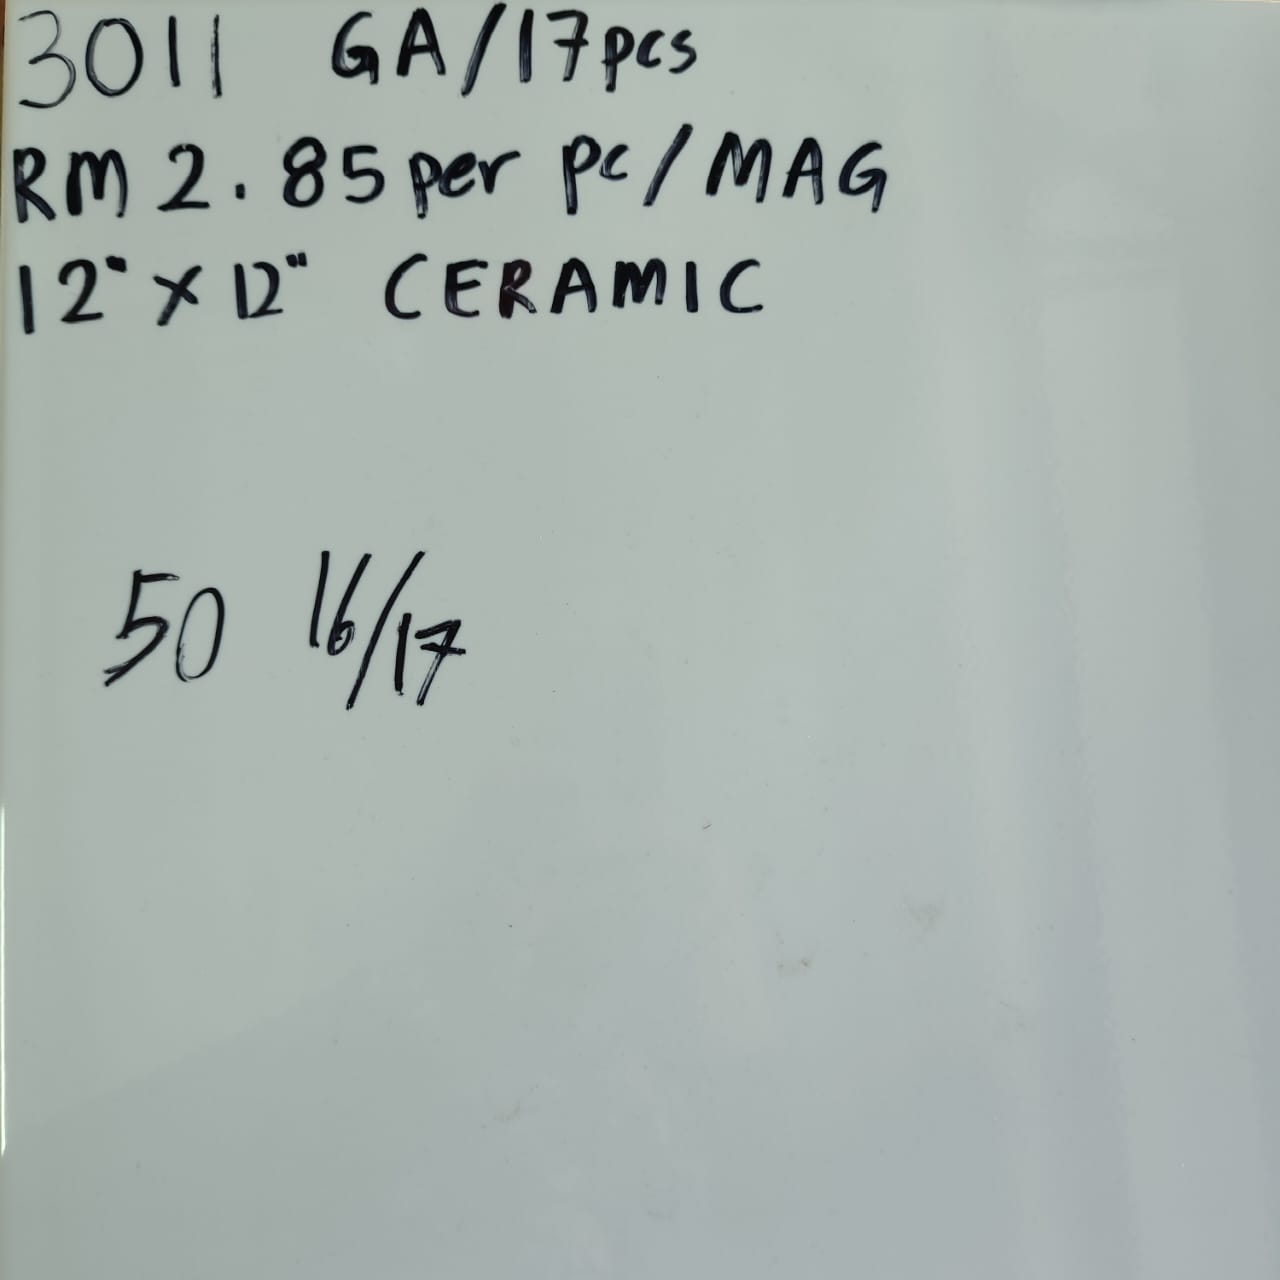 3011 GA/17pcs
RM 2.85 per pc/MAG
12" x 12" CERAMIC
50 16/17